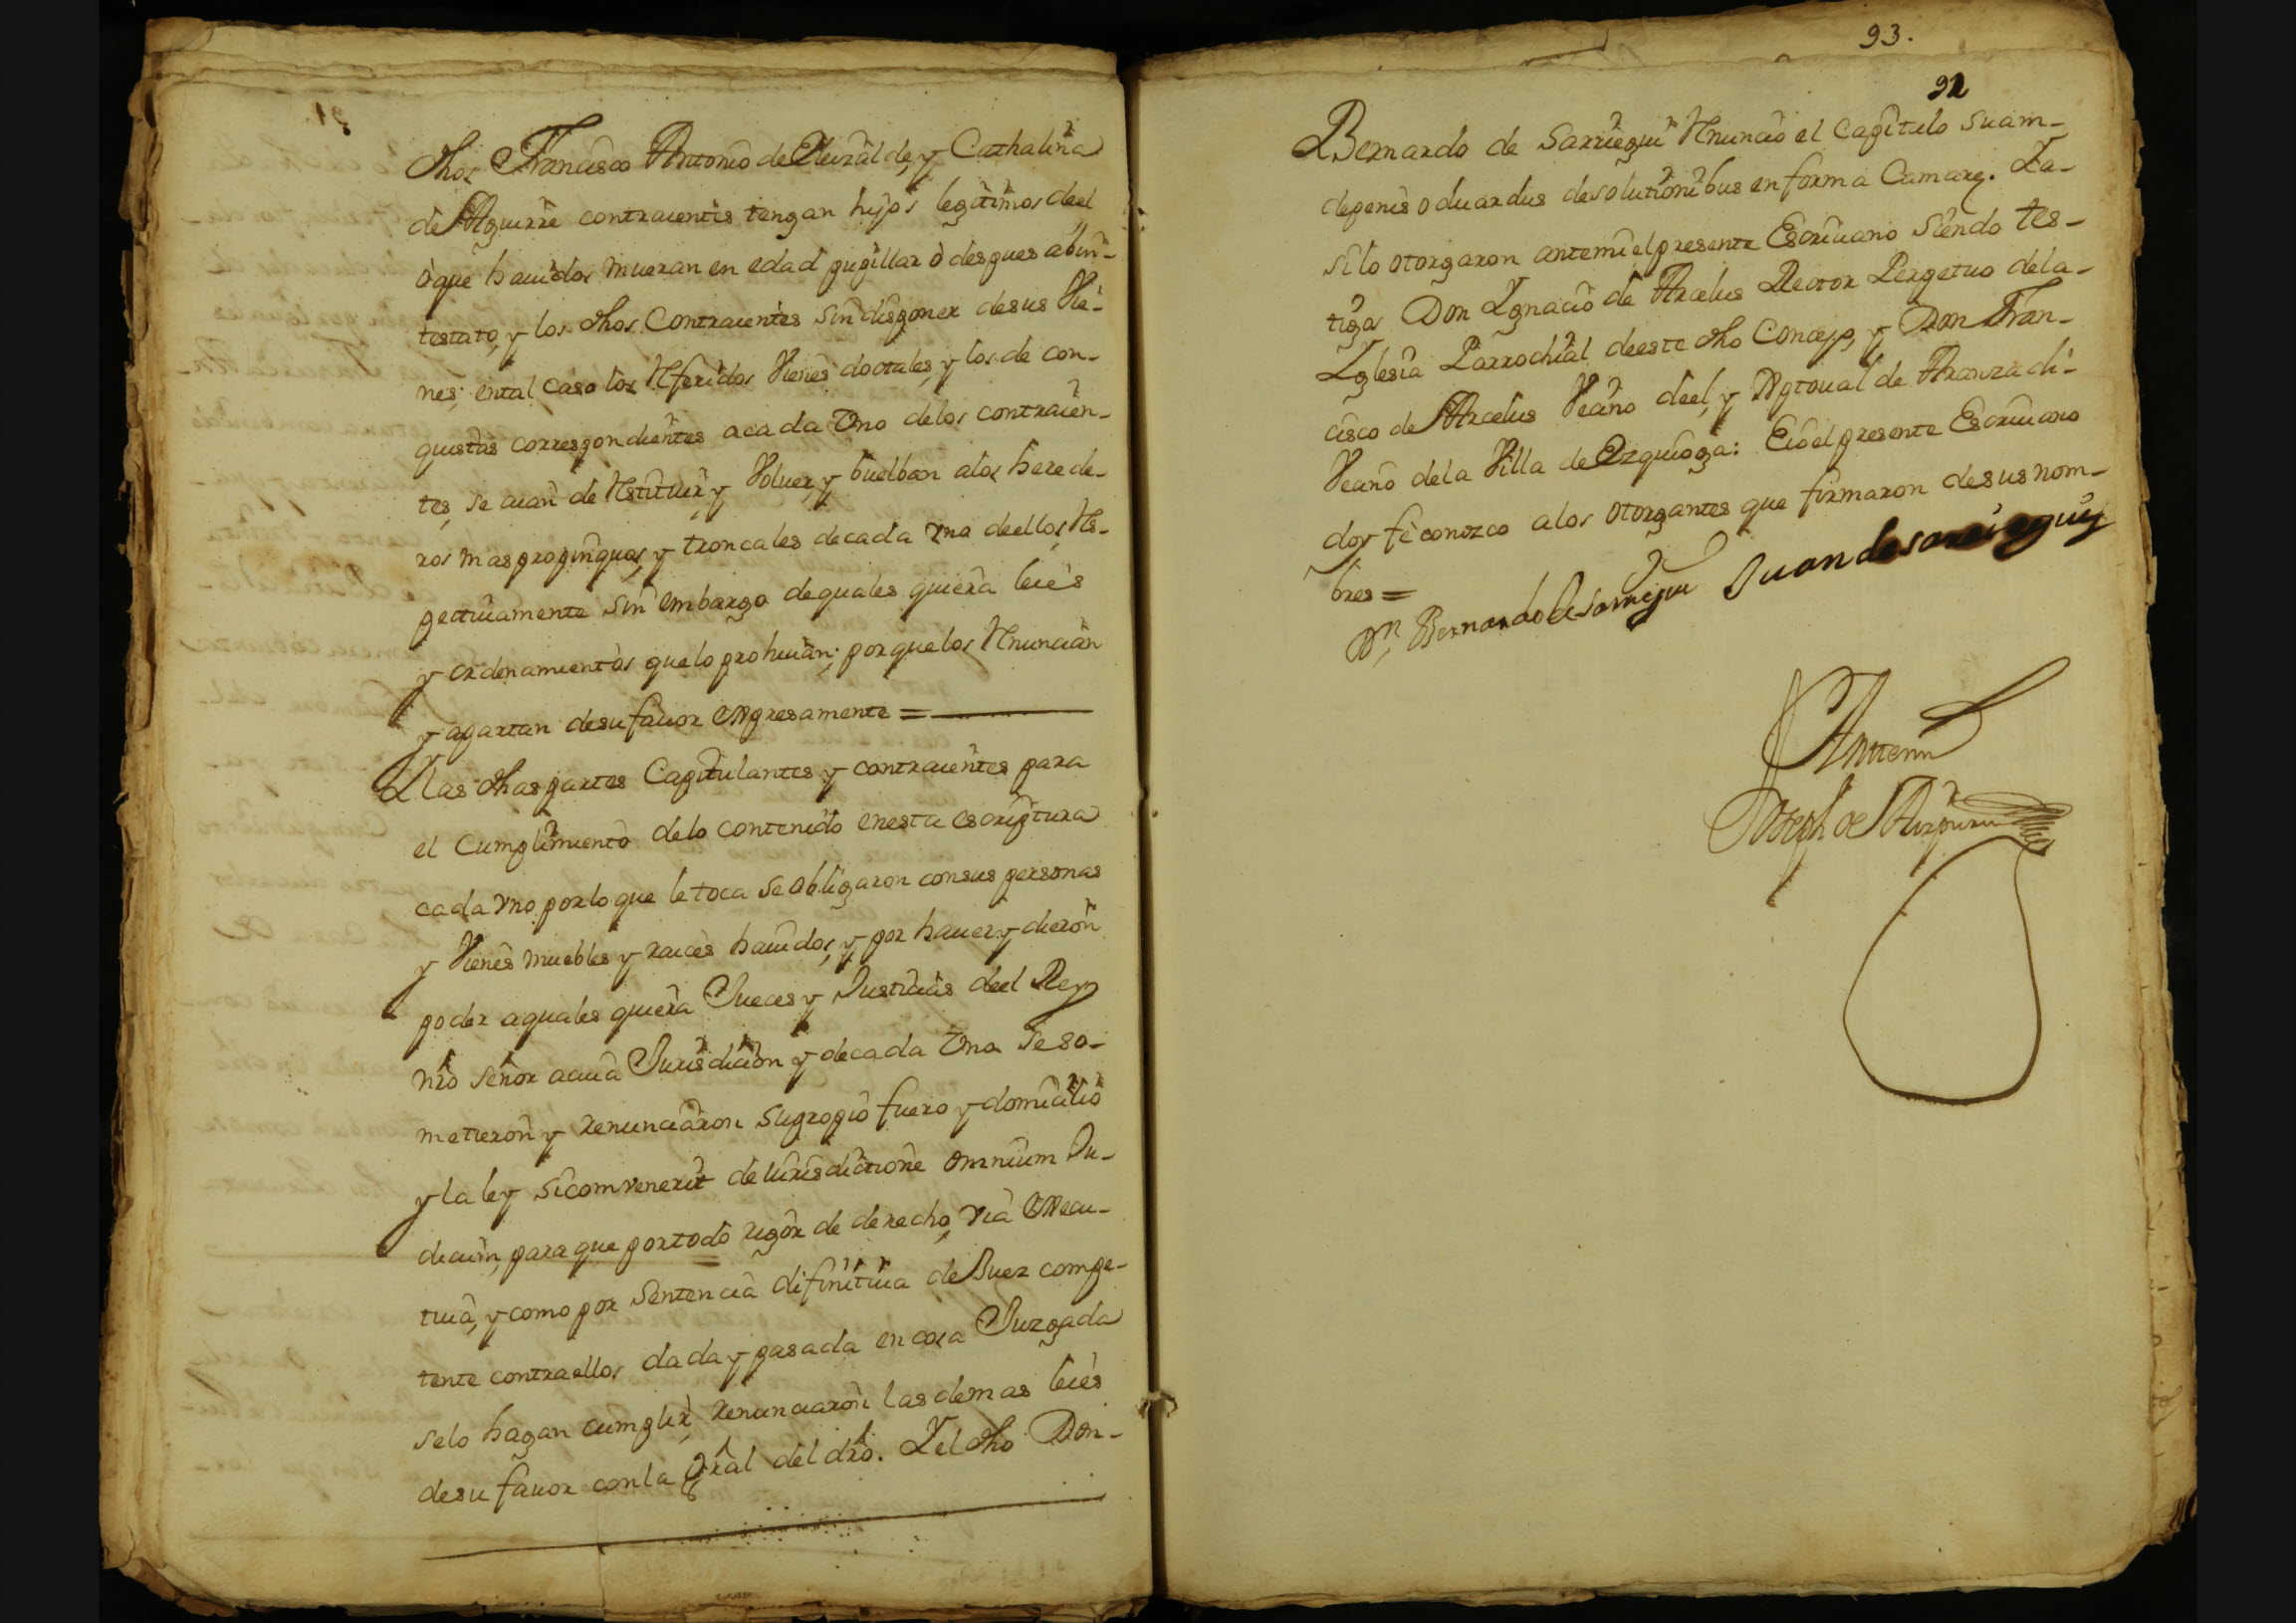 dhos Francisco Antonio de Eleizalde, y Cathalina
de Aguirre contraientes tengan hijos legitimos deel
ò que hauidos mueran en edad pupillar ò despues abin-
testato, y los dhos Contraientes sin disponer de sus Vie-
nes; ental caso los Referidos Vienes dottales, y los de con-
quistas correspondientes acada Vno delos contraien-
tes, se aian de Restituir, y Voluer, y buelban alos herede-
ros mas propinquos, y troncales decada vno deellos, Res-
pectiuamente sin embargo dequales quiera leies
y ordenamientos quelo prohiuan; porquelos Renuncian
y apartan desufauor expresamente =
Ylas dhas partes Capitulantes y contraientes para
el Cumplimiento delo contenido enesta escriptura
cada vno porlo que le toca se obligaron consus personas
y Vienes muebles y raices hauidos, y por hauer y dieron
poder aquales quiera Jueces y Justicias deel Rey
nro señor acuia Jurisdicion y decada Vna se so-
metieron y renunciaron supropio fuero y domicilio
y la ley sicomvenerit de iurisdictione omnium Ju-
dicum, para que portodo rigor de derecho, via execu-
tiua, y como por sentencia difinitiua de Juez compe-
tente contraellos dada y pasada en cosa Juzgada
selo hagan cumplir, renunciaron las demas leies
desu fauor conla gral del dro. Y el dho Don
93.
92
Bernardo de Sarriegui Renuncio el Capitulo suam-
depenis oduardus desolutionibus en forma Camare. Ia-
silo otorgaron antemi el presente Escriuano siendo tes-
tigos Don Ygnacio de Arcelus Rector Perpetuo dela-
Yglesia Parrochial deeste dho Concejo, y Don Fran-
cisco de Arcelus Veçino deel, y Xptoual de Aranzadi-
Veçino dela Villa de Ezquioga: Eioel presente Escriuano
doy fè conozco alos otorgantes que firmaron desus nom-
bres =
Dn Bernardo de Sarriegui Juan de sarriegui
Antemi
Joseph de Aizpuru